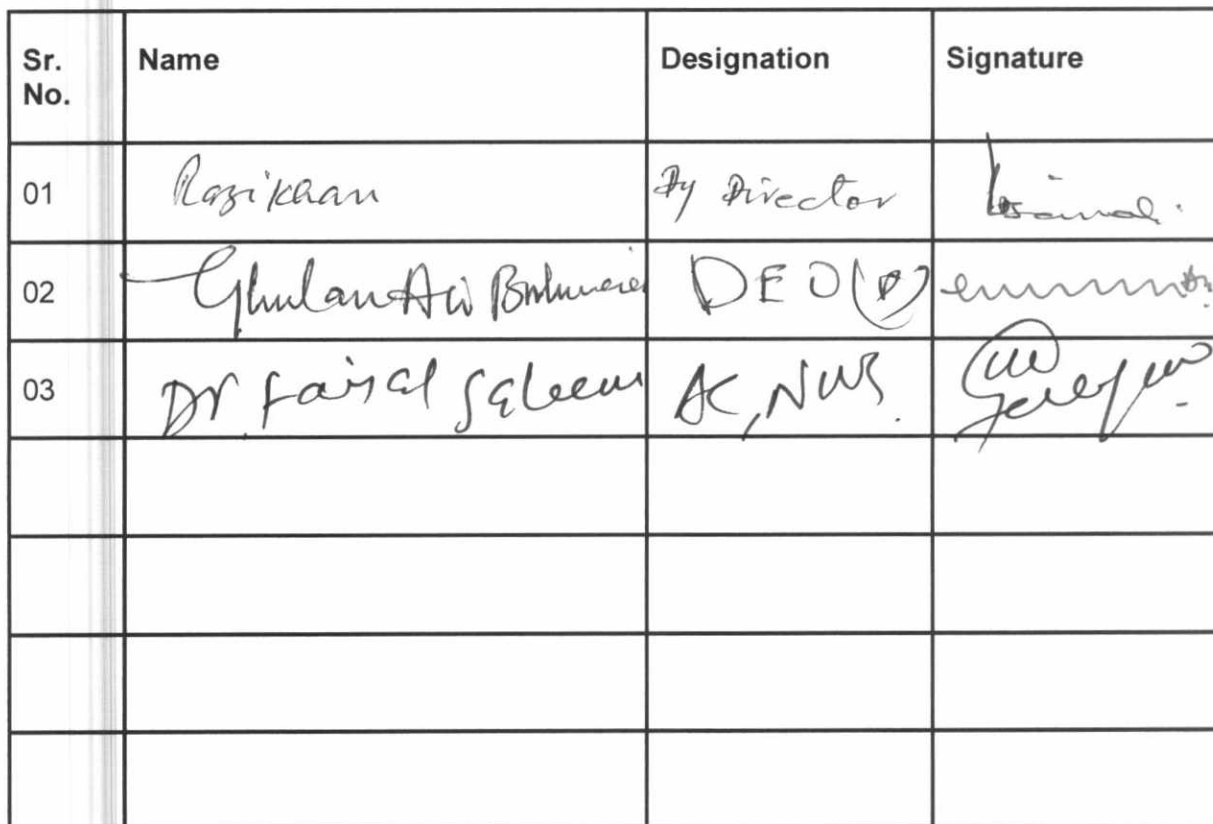 Sr. No. Name Designation Signature
01 Razi Khan Dy Director
02 Ghulam Ali DEO
03 Dr. Faisal Saleem AC,